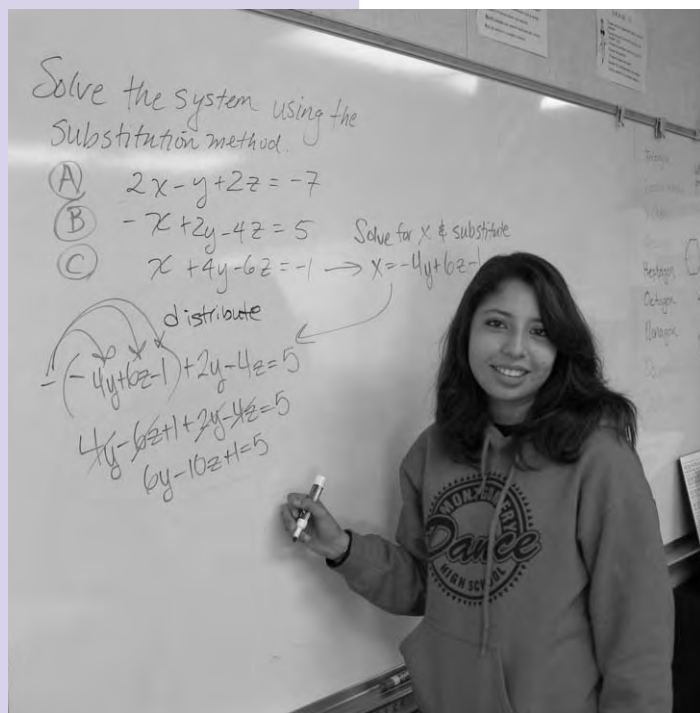 Solve the system using the
substitution method.
A 2x-y+2z=-7
B -x+2y-4z=5
Solve for x & substitute
C x+4y-6z=-1 → x=-4y+6z-1
distribute
-(-4y+6z-1)+2y-4z=5
4y-6z+1+2y-4z=5
6y-10z+1=5
MONTGOMERY
Dance
HIGH SCHOOL
Heptagon
Octagon
Nonagon